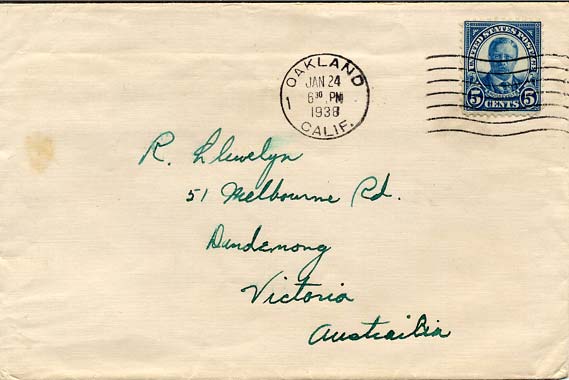 UNITED STATES POSTAGE
5 CENTS 5
OAKLAND
JAN 24
6 30 PM
1938
1
CALIF.
R. Llewelyn
51 Melbourne Rd.
Dandenong
Victoria
Austrailia